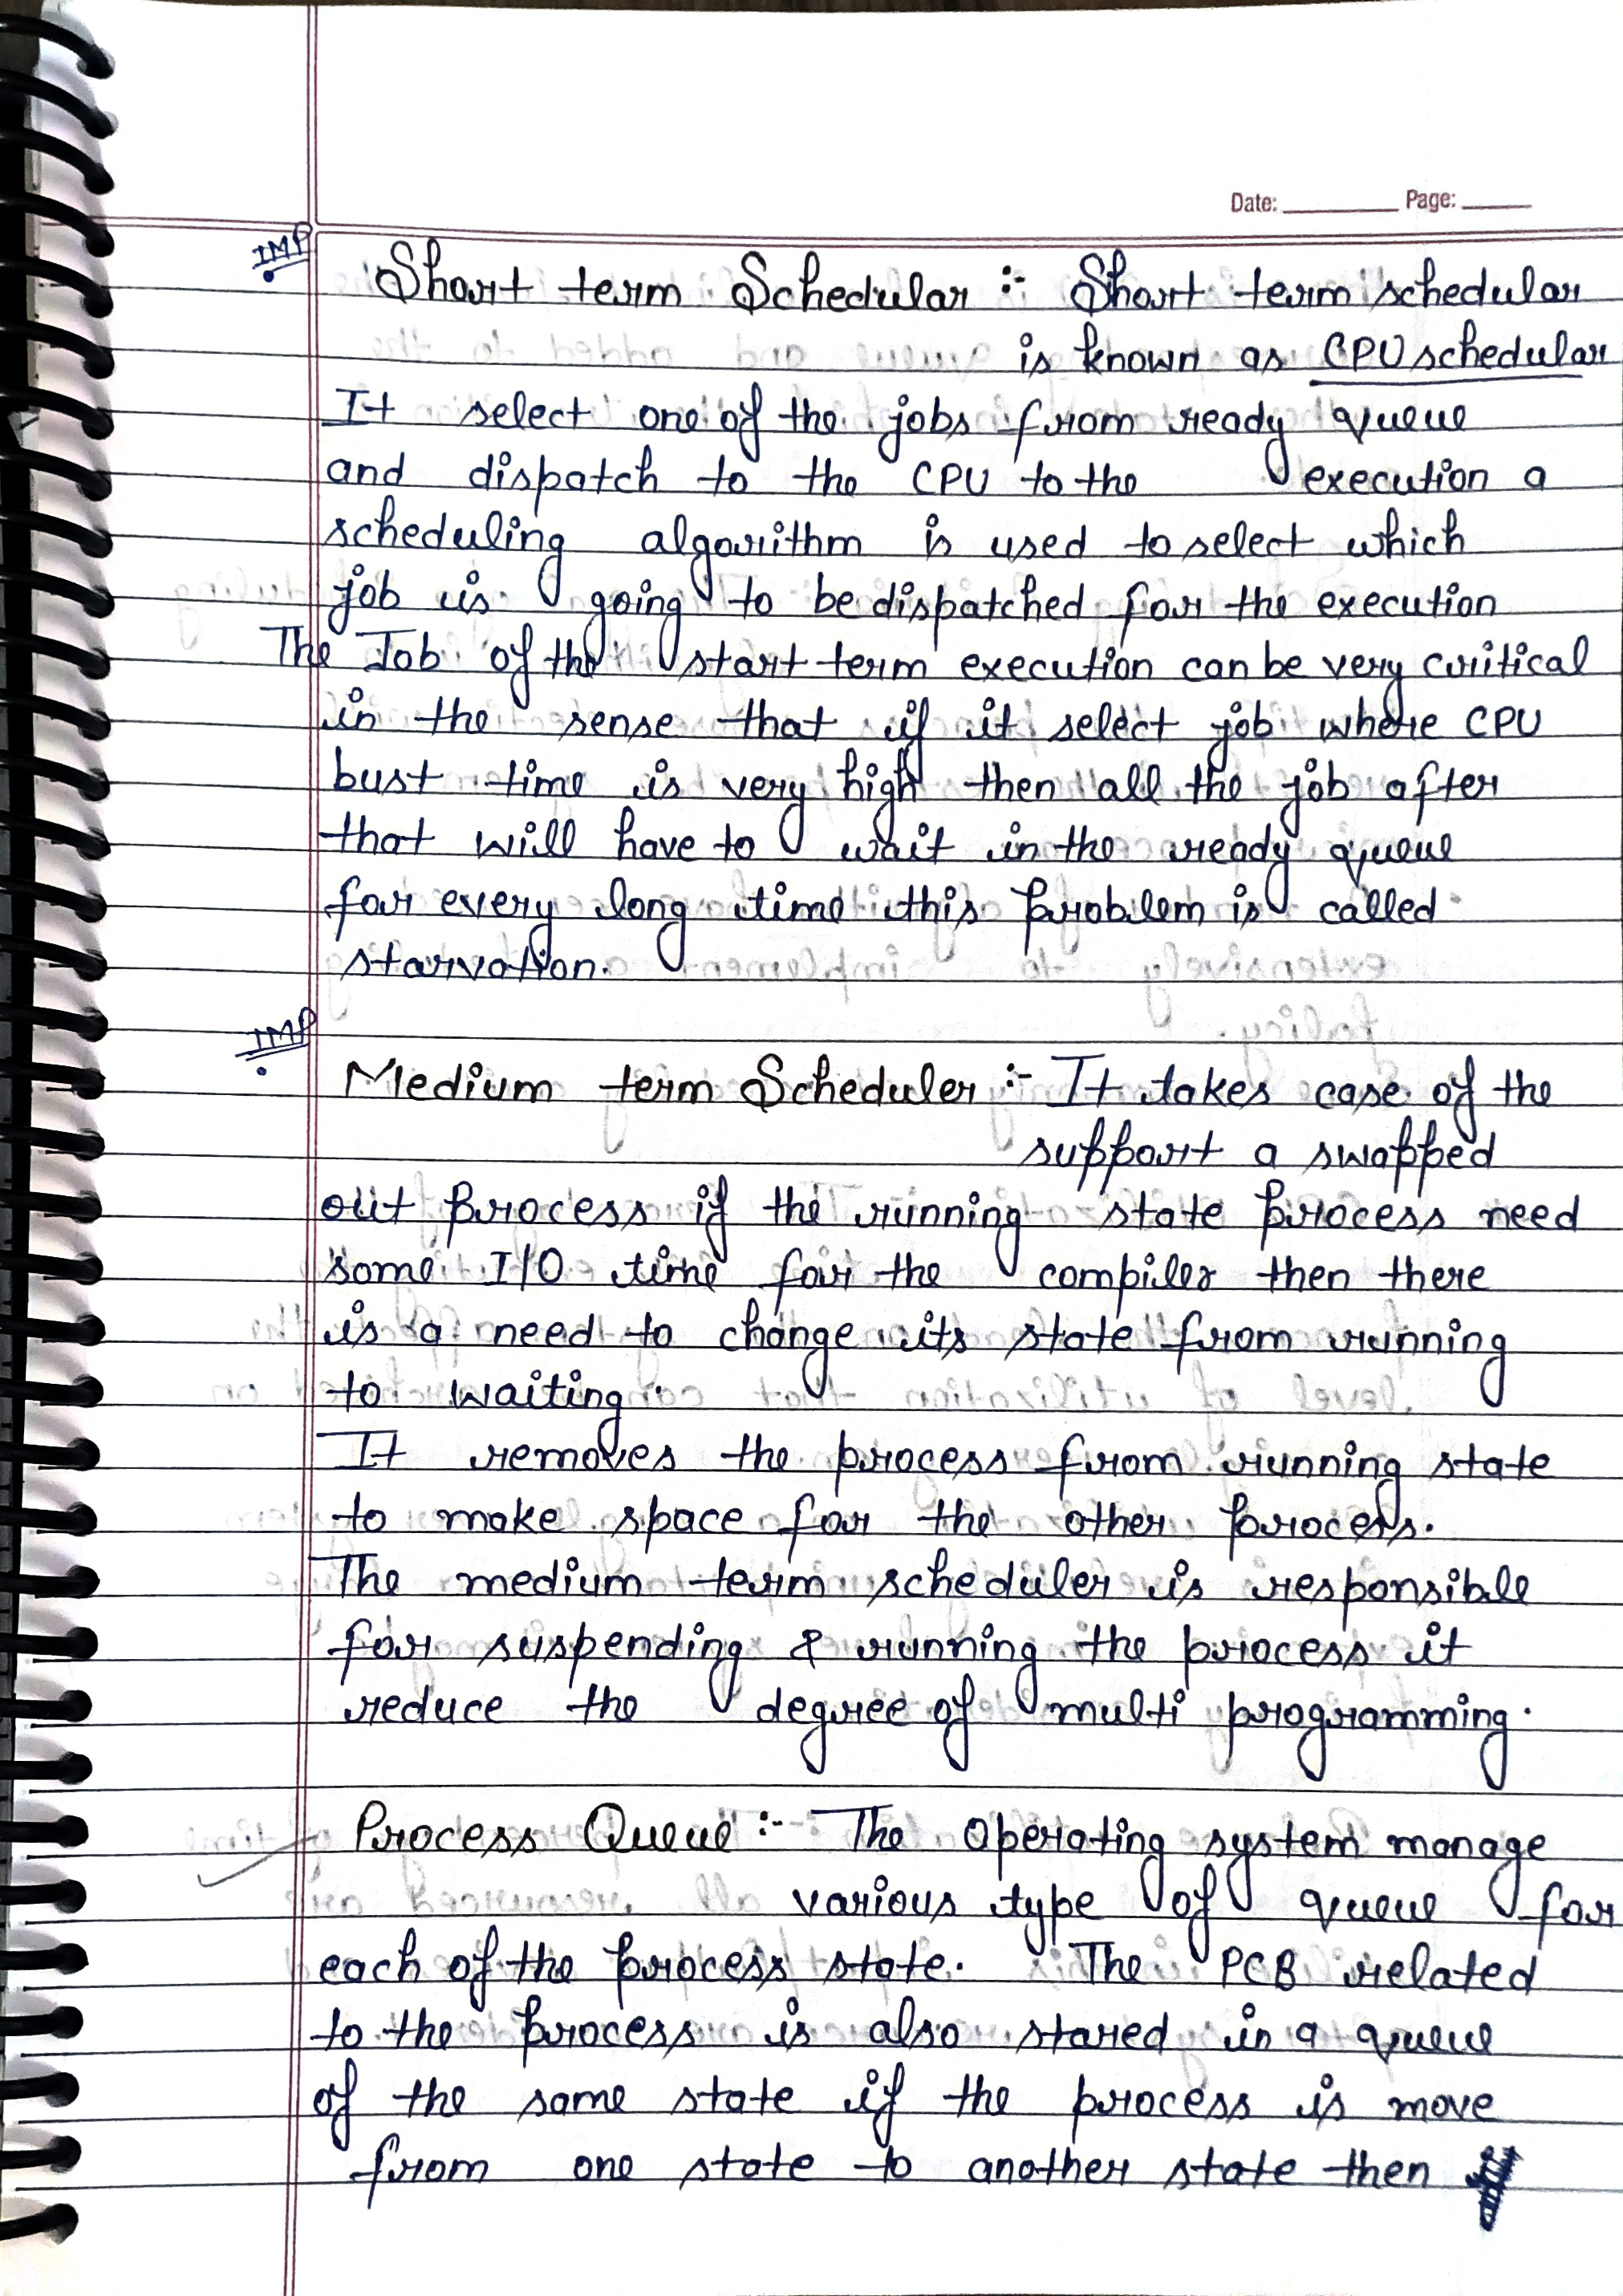 Date: Page:
IMP
Short term Schedular :- Short term schedular
is known as CPU schedular
It select one of the jobs from ready queue
and dispatch to the CPU to the execution a
scheduling algorithm is used to select which
job is going to be dispatched for the execution
The Job of the start term execution can be very critical
in the sense that if it select job where CPU
bust time is very high then all the job after
that will have to wait in the ready queue
for every long time this problem is called
starvation.
IMP
Medium term Scheduler :- It takes case of the
support a swapped
out process if the running state process need
some I/O time for the compiler then there
is a need to change its state from running
to waiting.
It removes the process from running state
to make space for the other process.
The medium term scheduler is responsible
for suspending & running the process it
reduce the degree of multi programming.
Process Queue :- The Operating system manage
various type of queue for
each of the process state. The PCB related
to the process is also stared in a queue
of the same state if the process is move
from one state to another state then